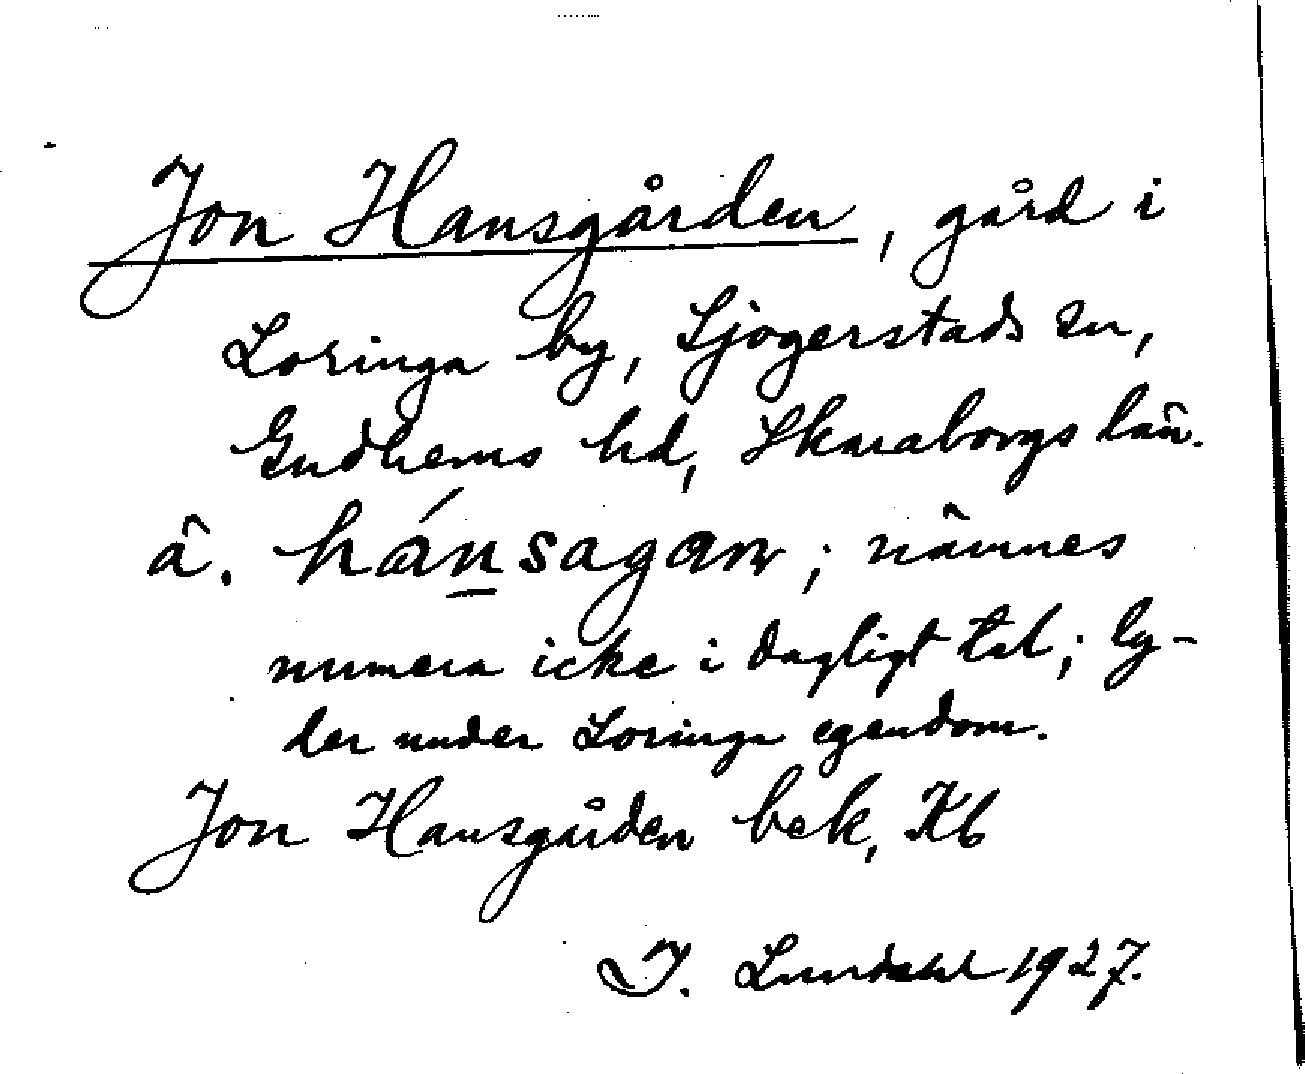 Jon Hansgården, gård i
Loringa by, Sjogerstads sn,
Gudhems hd, Skaraborgs län.
ä. hánsagaɷ; nämnes
numera icke i dagligt tal; ly-
der under Loringa egendom.
Jon Hansgården bek, Kb
I. Lundahl 1927.